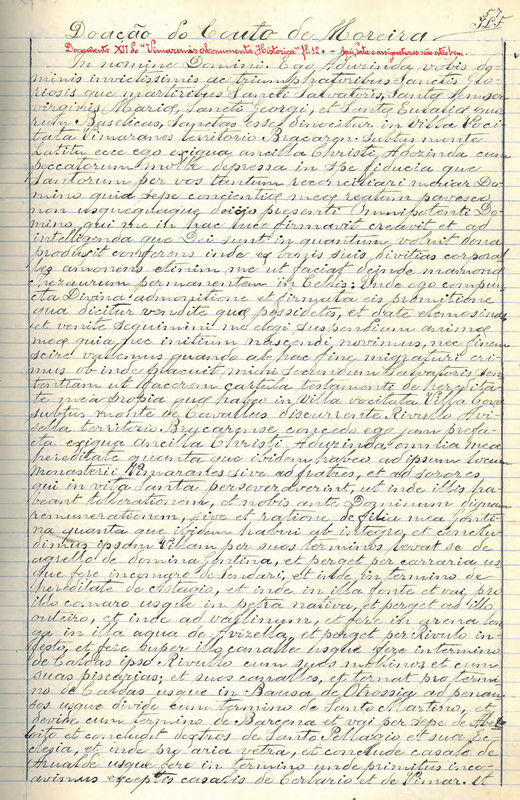 Doação do Couto de Moreira
Documento XII de "Vimaranis Monumenta Historica" fl. 12. -
In nomine Domini. Ego Adurinda vobis do-
minis invictissimis ac triumphatoribus Sanctis Glo-
riosis que martiribus Sancti Salvatoris, Santa semper
virginis Maria, Sancti Georgi, et Santa Eulalia quo-
rum Baselicas, Sanctas esse dinocitur in Villa Voci-
tata Vimaranes territorio Bracaren. Subtus monte
ecce ego exigua ancilla Christi, Adorinda cum
peccatorum mole depressa in spe fiducia que
Santorum per vos tantum reconciliari Do-
mino quia sepe concientiæ meæ reatum pavesco
non usquequaque presenti Omnipotenti Do-
mino qui me in hac luce firmavit creavit et ad
intelligenda que Dei sunt in quantum voluit dona
produsit conferens inde ex bonis suis divitias corpora-
les amonens etinim me ut faciat deinde
thezaurum permanentem in Celos: Unde ego compun-
cta Divina admonitione et firmata eis promitione
qua dicitur vendite qua possidetis, et date elemosinas
et venite sequimini me elegi suspendium animæ
meæ quia nec initium nascendi novimus, nec finem
scire valemus quando ab hac fine migraturi eri-
mus ob inde placuit michi secundum Salvatoris sen-
tentiam ut facerem cartula testamente de heredita-
te mea propia qua habeo in Villa vocitata Villa Cova
subtus monte de Cavallus discurrente Rivullo Avi-
sella territorio Bracarense concedo ego jam prefa-
cta exigua ancilla Christi Adurinda omnia mea
hereditate quanta que ibidem habeo ad ipsum locum
Monasterii Vimaranes sive ad fratres, et ad sorores
qui in vita Santa perseverdverint, ut inde illis ha-
beant tolberationem, et nobis ante Dominum dignam
remunerationem, sive et ratione de filia mea Gonti-
na quanta que ibidem habui ab integro, et conclu-
dimus ipsam Villam per suos terminos levat se de
agrello de domina Gontina, et perget per carraria us-
que fere in comaro de Sendari, et inde in termino de
hereditate de Astagio, et inde in illa fonte et vai, pro
illo comaro usque in petra nativa, et perget ad illo
outeiro, et inde ad vallinum, et fere in arena lon-
ga in illa aqua de Avizella, et perget per Rivulo in
festo, et fere super illo canalle usque fere in termino
de Caldas ipso Rivullo cum suos molinos et cum
suas piscarias; et suos canalles, et tornat pro termi-
no de Caldas usque in Bausa de Chossig ad penau-
sos usque divide cum termino de Santo Martino, et
devide cum termino de Barcena et vai per sepe de
et concludit dextros de Santo Pellagio et sua Ec-
clesia, et inde pro aria vetra, et conclude casale de
usque fere in termino unde primitus inco-
avimus exceptis casalis de Certario et de Vimar. Et